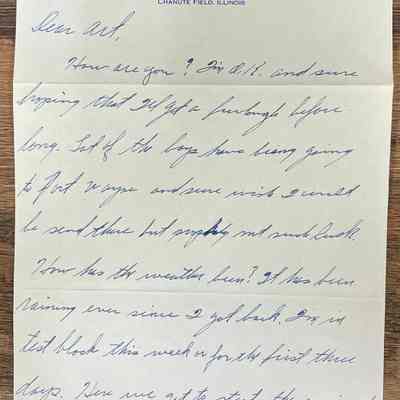 CHANUTE FIELD, ILLINOIS
Dear Art,
How are you? I'm O.K. and sure
hoping that I'll get a furlough before
long. Lot of the boys have being going
to Fort Wayne and sure wish I could
be send there but not such luck.
How has the weather been? It has been
raining ever since I got back. I'm in
test block this week or for the first three
days. Here we get to start the